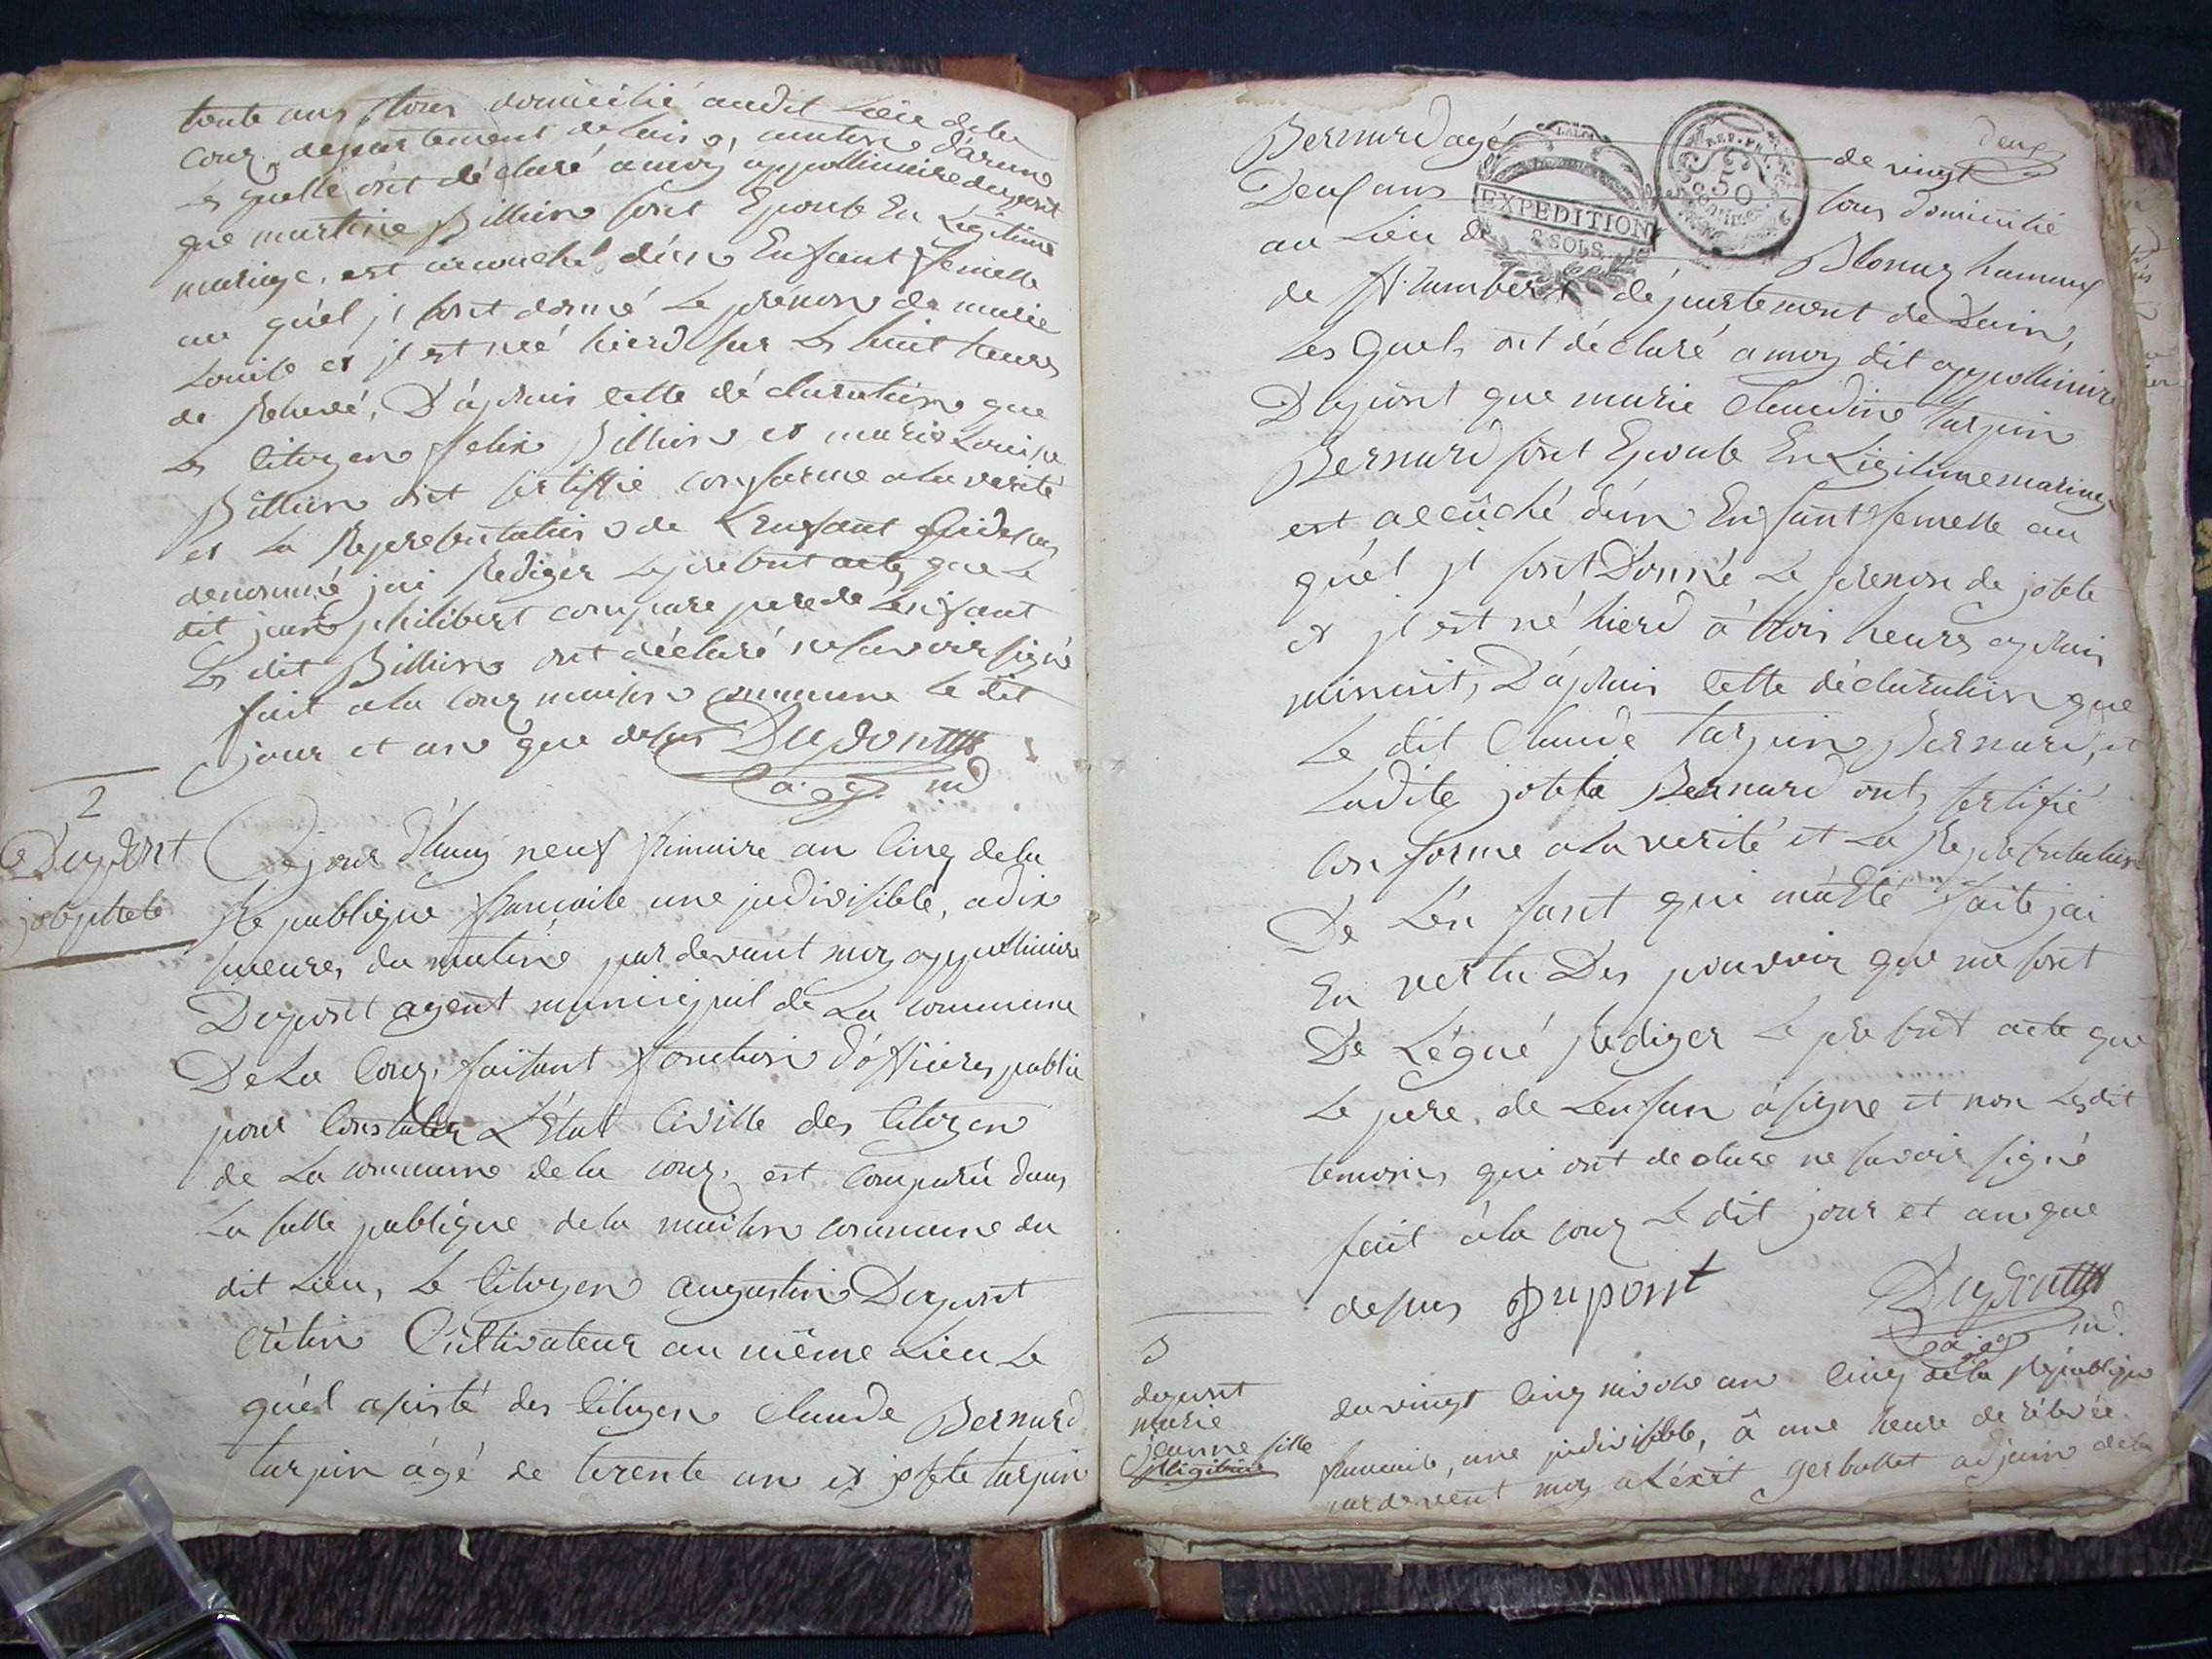 trente ans tous domicilié audit Lieu de la
couz, departement de Lain, canton d'aranc
Les quelle ont déclaré a moy appollinaire dupont
que martine Billion sont Epouse En Legitime
mariage, est accouché d'un Enfant femelle
au quél jl sont donné Le prénom de marie
Louise et jl est née hierd sur Les huit heures
de Relevé, D'aprais cette déclaration que
Les citoyen felix Billion et marie Louise
Billion ont sertiffié conforme a la verité
et La Represetation de L'enfant qui desus
denommé jai Rediger Le present acte que Le
dit jean philibert compare pere de Lenfant
Les dit Billion ont déclaré ne savoir signé
fait a la couz maison commune Le dit
jour et an que desus Dupont
ag. m
2
Dupont
josephete
Cejour d'huy neuf frimaire an cinq de la
Republique francaise une jndivisible, a dix
heures du matine par devant moy appollinaire
Dupont agent municipail de La commune
De La couz, faisant fonction d'officiers public
pour Constater L'Etat Civille des Citoyen
de La commune de la couz, est comparu dans
La salle publique de la maison commune du
dit Lieu, Le Citoyen augustin Dupont
Cultivateur au même Lieu Le
quél asisté des Citoyen Claude Bernard
turpin âgé de trente an et josete turpin
deux
Bernard agé de vingt
Deux ans tous domicilié
au Lieu de Blonaz hammeaux
EXPEDITION
2 SOLS
REP. FRA
50
centimes
de St. rambert département de Lain,
Les Quels ont déclaré a moy dit appollinaire
Dupont que marie Claudine turpin
Bernard sont Epouse En Legitime mariage
est accûché d'un Enfant femelle au
quél jl sont Donné Le prenom de josete
et jl est né hierd á trois heures aprais
minuit, D'aprais Cette déclaration que
Le dit Claude turpin Bernard, et
Ladite josete Bernard ont sertifié
Con forme a la verité et La Represetation
De L'én fant qui m'a Eté faite jai
En vertu Des pouvoir que me sont
De Légué Rediger Le present acte que
Le pere de Lenfan á signe et non Lesdit
temoins qui ont declare ne savoir signé
fait á la couz Le dit jour et an que
desus Dupont Dupont
ag. m.
3
dupont
marie
jeanne fille
jlligitime
du vingt cinq nivose an cinq de la Republique
francaise, une jndivisible, â une heure de rélevée
par devent moy aléxit gerballet adjoin de la